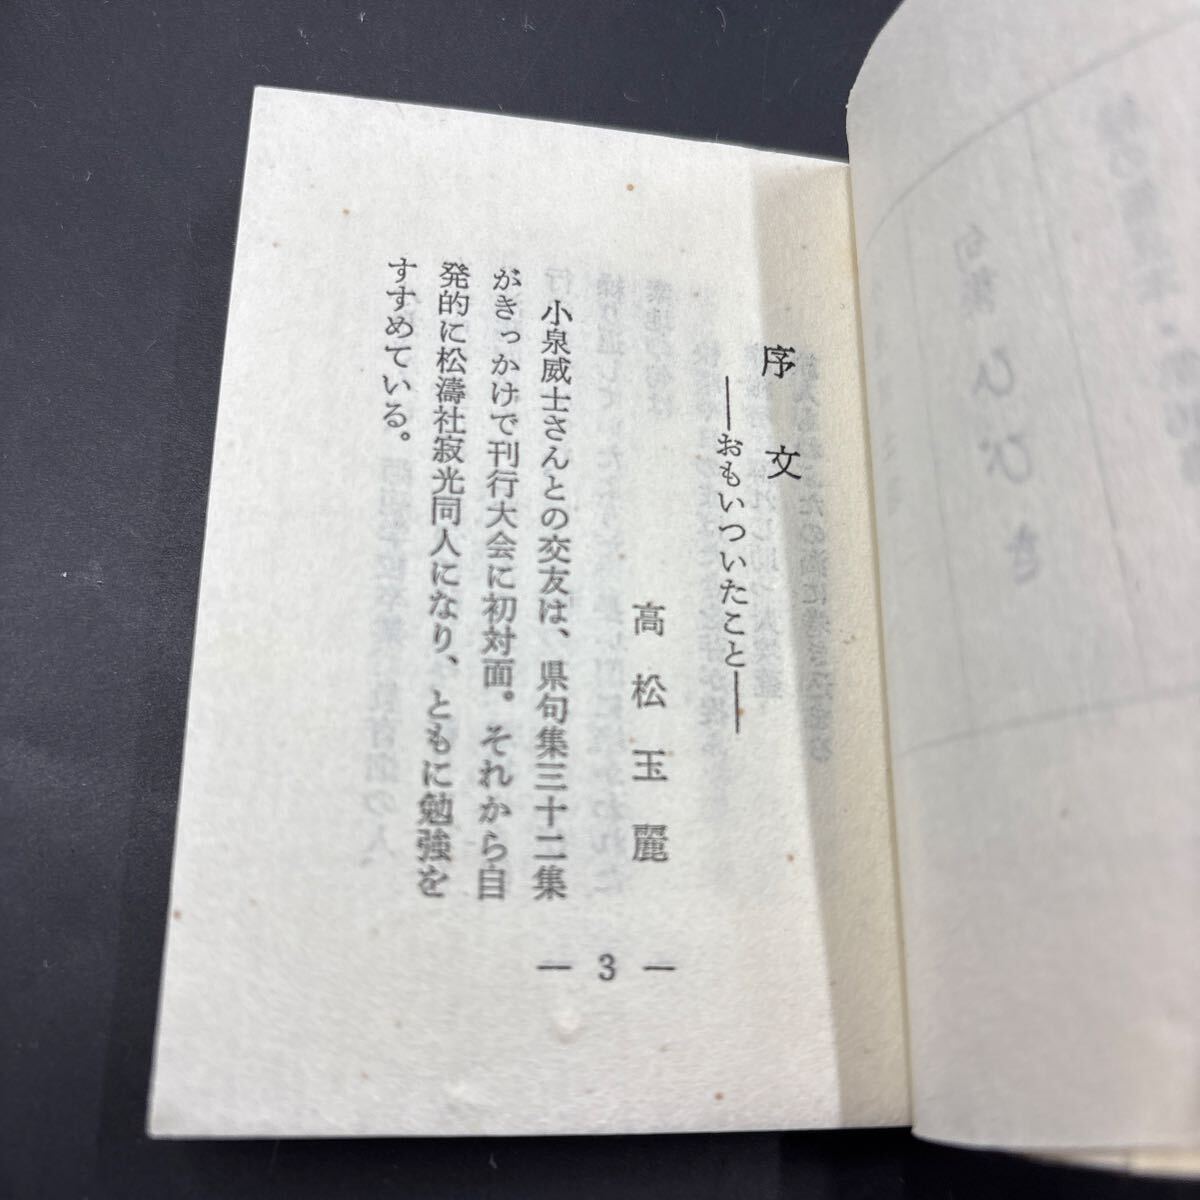 序文
――おもいついたこと――
高松玉麗
小泉威士さんとの交友は、県句集三十二集
がきっかけで刊行大会に初対面。それから自
発的に松濤社寂光同人になり、ともに勉強を
すすめている。
― 3 ―
句集 ひびき